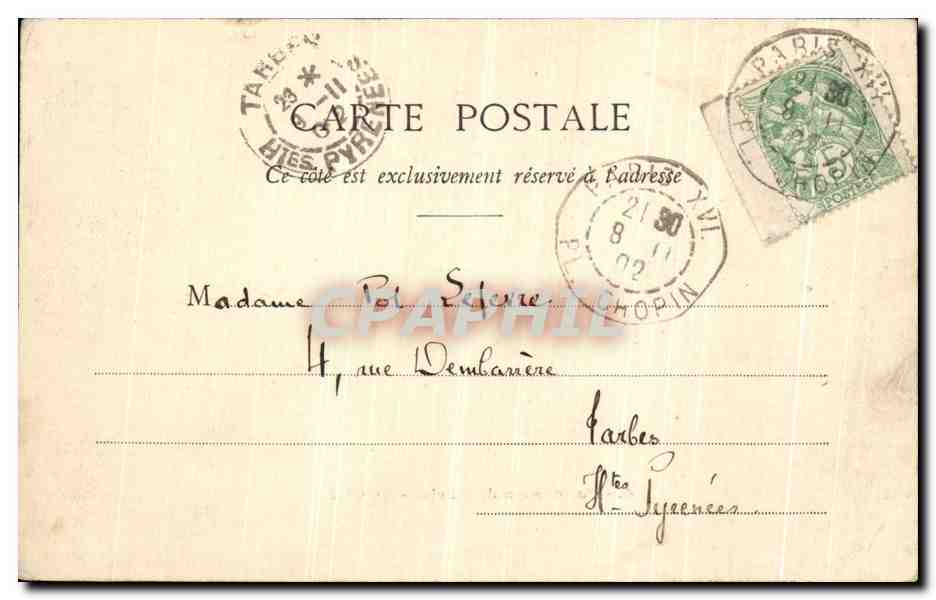 TARBES
23 * 9-11 02
HTES PYRÉNÉES
PARIS XVI
21 30
8 11
PL. CHOPIN
POSTES
CARTE POSTALE
Ce côté est exclusivement réservé à l'adresse
PARIS XVI.
21 30
8 11
02
PL. CHOPIN
Madame Pol Lefevre
CPAPHIL
4, rue Dembarrère
Tarbes
Htes Pyrénées.